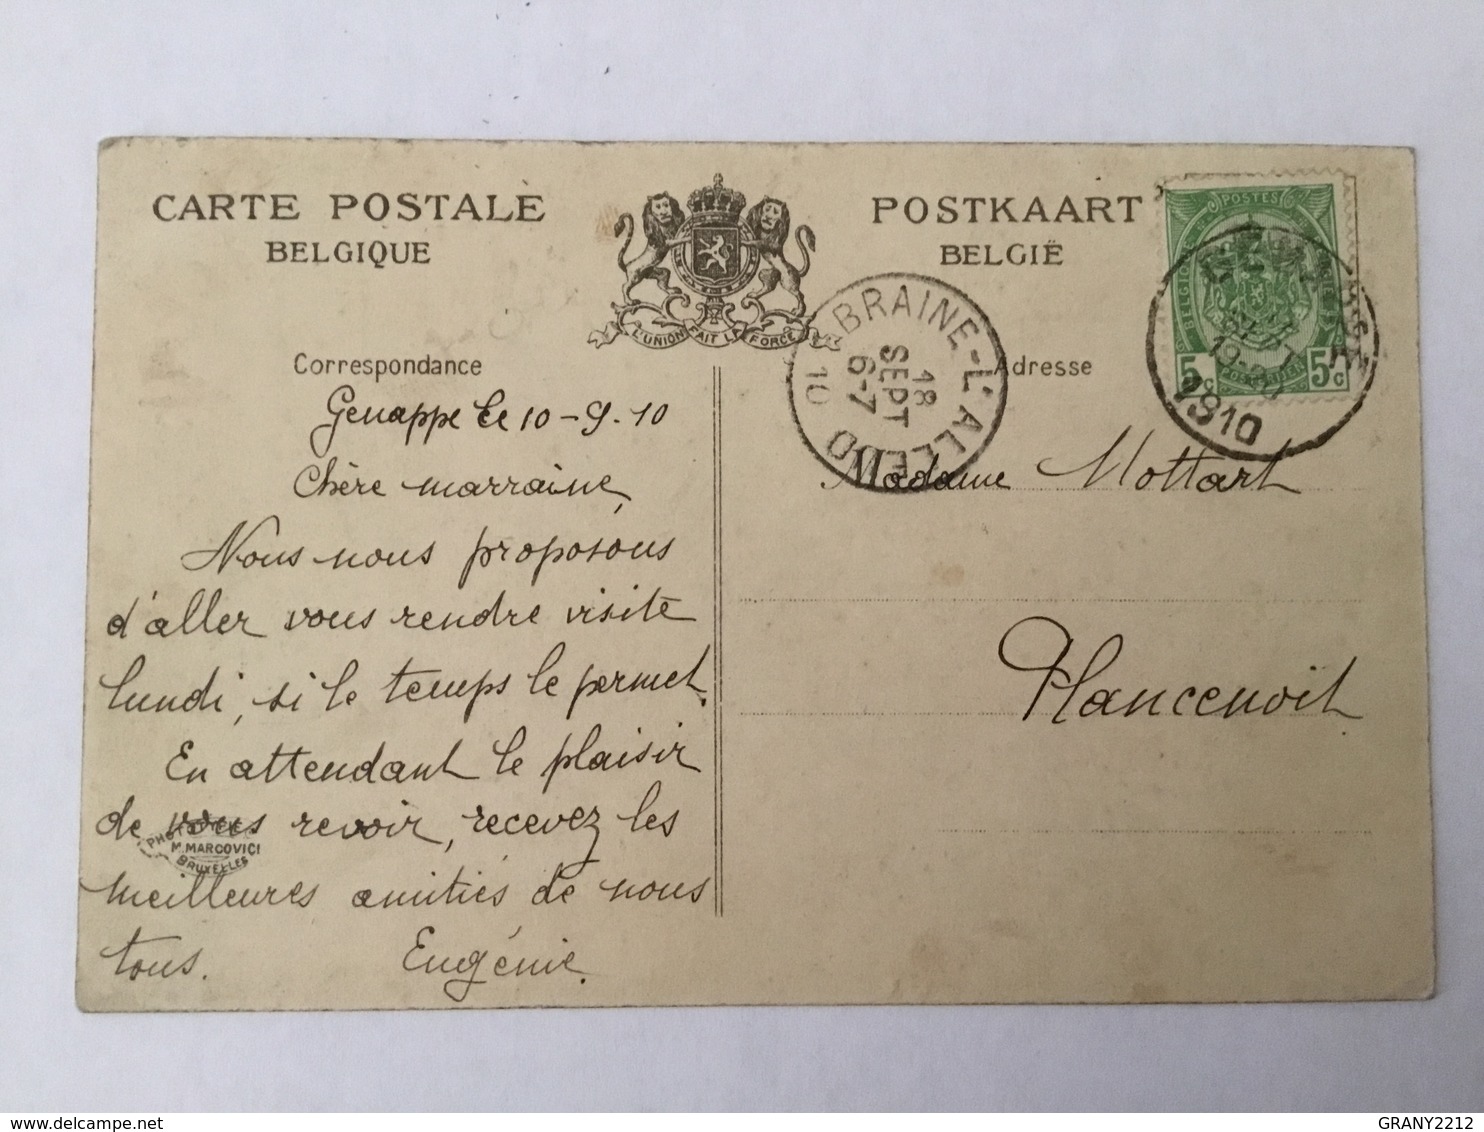 CARTE POSTALE
BELGIQUE
L'UNION FAIT LA FORCE
POSTKAART
BELGIË
POSTES
BELGIQUE
BELGIË
5c POSTERIJEN 5c
1910
BRAINE-L'ALLEUD
18
SEPT
6-7
10
Correspondance
Adresse
Genappe le 10-9.10
Chère marraine,
Nous nous proposons
d'aller vous rendre visite
lundi, si le temps le permet.
En attendant le plaisir
de vous revoir, recevez les
meilleures amitiés de nous
tous. Eugénie.
M. MARCOVICI
BRUXELLES
Madame Mottart
Plancenoit
delcampe.net
GRANY2212